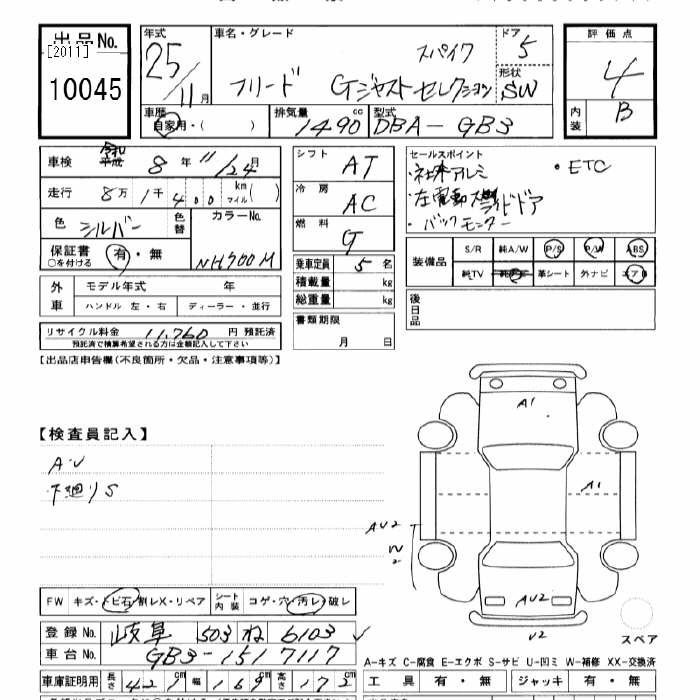 出品No.
[2011]
10045
年式
25/11月
車名・グレード
スパイク
フリード Gジャストセレクション
ドア
5
形状
SW
評価点
4
内装
B
車歴
自家用・( )
排気量
1490cc
型式
DBA-GB3
車検 令和 8年11/24月
走行 8万1千400 km マイル( )
色 シルバー
色替
カラーNo.
NH700M
保証書 有・無
○を付ける
シフト AT
冷房 AC
燃料 G
乗車定員 5名
積載量 kg
総重量 kg
書類期限
月 日
セールスポイント
・社外アルミ
・ETC
・左電動スライドドア
・バックモニター
装備品
S/R 純A/W P/S P/W ABS
純TV 革シート 外ナビ エアB
後日品
外車
モデル年式 年
ハンドル 左・右
ディーラー・並行
リサイクル料金 11,760 円 預託済
預託済で積算希望される方は金額記入して下さい
【出品店申告欄(不良箇所・欠品・注意事項等)】
【検査員記入】
A・U
下廻りS
A1
A1
AU2
W2
AU2
U2
スペア
FW キズ・トビ石・割レX・リペア
シート内装 コゲ・穴・汚レ・破レ
登録No. 岐阜 503 ね 6103
車台No. GB3-1517117
A-キズ C-腐食 E-エクボ S-サビ U-凹ミ W-補修 XX-交換済
車庫証明用 長さ 421cm 幅 169cm 高さ 172cm
工具 有・無 ジャッキ 有・無